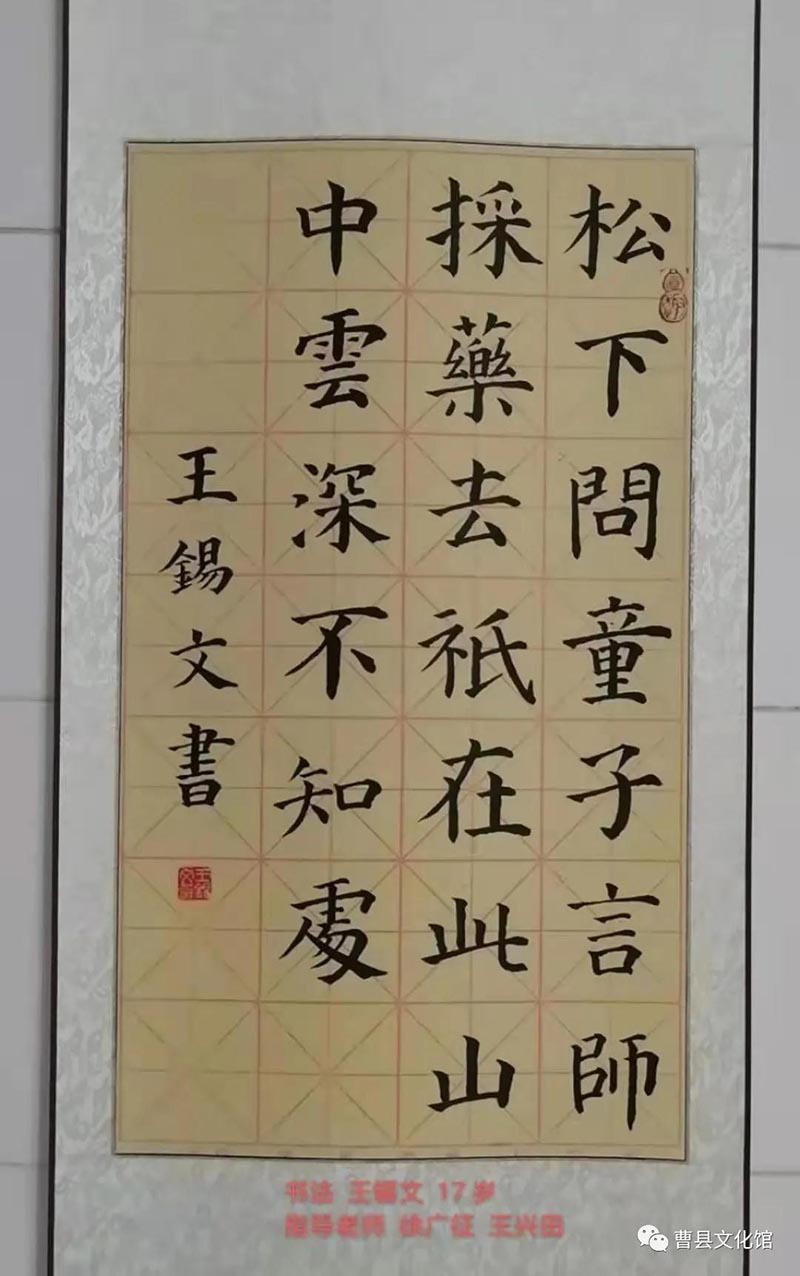 松下問童子言師
採藥去祇在此山
中雲深不知處
王錫文書
书法 王锡文 17岁
指导老师 徐广征 王兴田
曹县文化馆